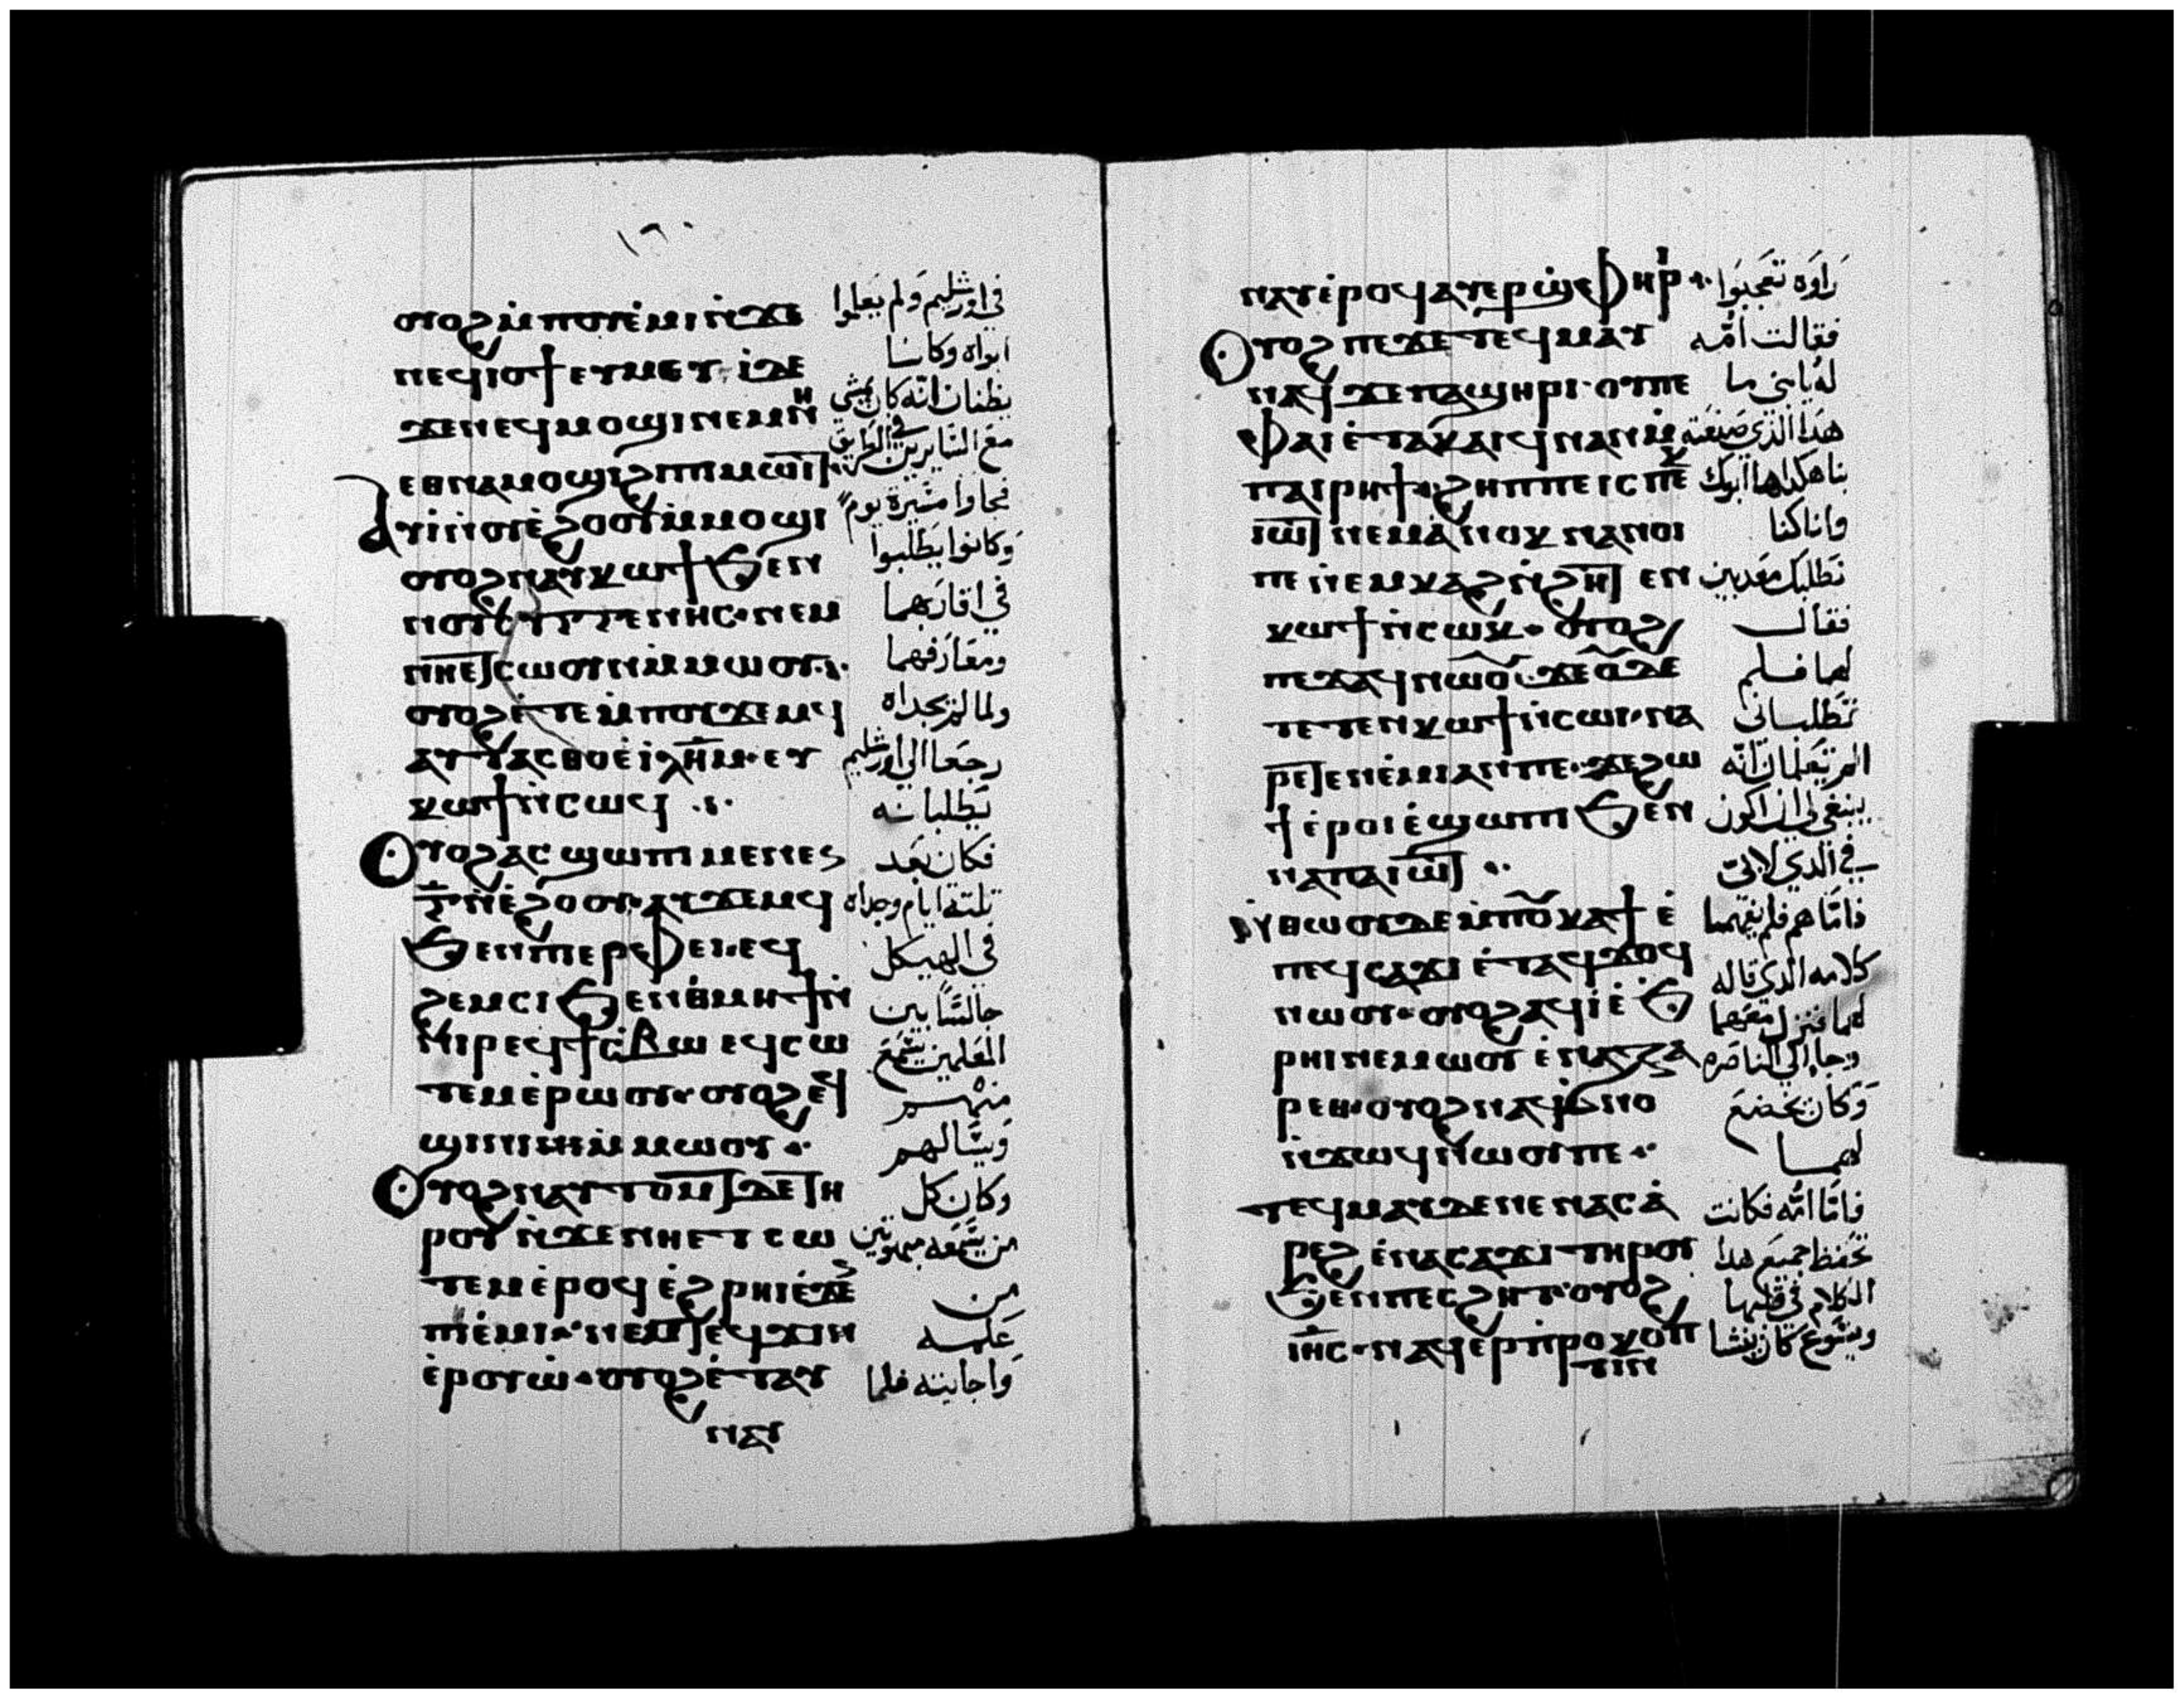 ١٦٠
ⲟⲩⲟϩ ⲙ̀ⲡⲟⲩⲉ̀ⲙⲓ ⲛ̀ϫⲉ في اورشليم ولم يعلموا
ⲛⲉϥⲓⲟϯ ⲉⲩⲙⲉⲩⲓ̀ ⲇⲉ ابواه وكانا
ϫⲉ ⲛⲉϥⲙⲟϣⲓ ⲛⲉⲙ ⲛⲏ يظنان انه كان يمشي
ⲉⲑⲛⲁⲙⲟϣⲓ ϩⲓ ⲡⲓⲙⲱⲓⲧ مع السايرين في الطريق
ⲁⲩⲓ̀ ⲛ̀ⲟⲩⲉ̀ϩⲟⲟⲩ ⲙ̀ⲙⲟϣⲓ فجاوا مسيرة يوم
ⲟⲩⲟϩ ⲛⲁⲩⲕⲱϯ ϧⲉⲛ وكانوا يطلبوا
ⲛⲟⲩⲥⲩⲅⲅⲉⲛⲏⲥ ⲛⲉⲙ في اقاربهما
ⲛⲏⲉⲧⲥⲱⲟⲩⲛ ⲙ̀ⲙⲱⲟⲩ ومعارفهما
ⲟⲩⲟϩ ⲉ̀ⲧⲉ ⲙ̀ⲡⲟⲩϫⲉⲙϥ ولما لم يجداه
ⲁⲩⲧⲁⲥⲑⲟ ⲉ̀ⲓⲗⲏⲙ ⲉⲩ رجعا الى اورشليم
ⲕⲱϯ ⲛ̀ⲥⲱϥ يطلبانه
ⲟⲩⲟϩ ⲁⲥϣⲱⲡⲓ ⲙⲉⲛⲉⲥ فكان بعد
ⲅ̅ ⲛ̀ⲉ̀ϩⲟⲟⲩ ⲁⲩϫⲉⲙϥ تلتة ايام وجداه
ϧⲉⲛ ⲡⲓⲉⲣⲫⲉⲓ ⲉϥ في الهيكل
ϩⲉⲙⲥⲓ ϧⲉⲛ ⲑ̀ⲙⲏϯ ⲛ̀ جالسا بين
ⲛⲓⲣⲉϥϯⲥ̀ⲃⲱ ⲉϥⲥⲱ المعلمين يسمع
ⲧⲉⲙ ⲉ̀ⲣⲱⲟⲩ ⲟⲩⲟϩ ⲉϥ منهم
ϣⲓⲛⲓ ⲙ̀ⲙⲱⲟⲩ ويسالهم
ⲟⲩⲟϩ ⲛⲁⲩⲧⲟⲙⲧ ⲇⲉ ⲧⲏ وكان كل
ⲣⲟⲩ ⲛ̀ϫⲉ ⲛⲏⲉⲧⲥⲱ من يسمعه مبهوتين
ⲧⲉⲙ ⲉ̀ⲣⲟϥ ⲉ̀ϩⲣⲏⲓ ⲉ̀ϫⲉⲛ من
ⲡⲉ̀ⲙⲓ ⲛⲉⲙ ⲛⲉϥϫⲓⲛ علمه
ⲉ̀ⲣⲟⲩⲱ̀ ⲟⲩⲟϩ ⲉ̀ⲧⲁⲩ واجابيته فلما
ⲛⲁⲩ
ⲛⲁⲩ ⲉ̀ⲣⲟϥ ⲁⲩⲉⲣϣ̀ⲫⲏⲣⲓ راوه تعجبوا
ⲟⲩⲟϩ ⲡⲉϫⲉ ⲧⲉϥⲙⲁⲩ فقالت امه
ⲛⲁϥ ϫⲉ ⲡⲁϣⲏⲣⲓ ⲟⲩ ⲡⲉ له يابني ما
ⲫⲁⲓ ⲉ̀ⲧⲁⲕⲁⲓϥ ⲛⲁⲛ ⲙ̀ هذا الذي صنعته
ⲡⲁⲓⲣⲏϯ ϩⲏⲡⲡⲉ ⲓⲥ ⲡⲉⲕ بنا هكذا ها ابوك
ⲓⲱⲧ ⲛⲉⲙ ⲁ̀ⲛⲟⲕ ⲛⲁⲛⲟⲓ وانا كنا
ⲡⲉ ⲛ̀ⲉⲙⲕⲁϩ ⲛ̀ϩⲏⲧ ⲉⲛ نطلبك معذبين
ⲕⲱϯ ⲛ̀ⲥⲱⲕ ⲟⲩⲟϩ فقال
ⲡⲉϫⲁϥ ⲛⲱⲟⲩ ϫⲉ ⲟⲩ ϫⲉ لهما فلم
ⲧⲉⲧⲉⲛⲕⲱϯ ⲛ̀ⲥⲱⲓ ⲛⲁ تطلباني
ⲣⲉⲧⲉⲛⲉ̀ⲙⲓ ⲁⲛ ⲡⲉ ϫⲉ ϩⲱ الم تعلمان انه
ϯ ⲉ̀ⲣⲟⲓ ⲉ̀ϣⲱⲡⲓ ϧⲉⲛ ينبغي لي ان اكون
ⲛⲁ ⲡⲁⲓⲱⲧ في الذي لابي
ⲛ̀ⲑⲱⲟⲩ ⲇⲉ ⲙ̀ⲡⲟⲩⲕⲁϯ ⲉ̀ فاما هم فلم يفهما
ⲡⲉϥⲥⲁϫⲓ ⲉ̀ⲧⲁϥϫⲟϥ كلامه الذي قاله
ⲛⲱⲟⲩ ⲟⲩⲟϩ ⲁϥⲓ̀ ⲉ̀ϧ لهما فنزل معهما
ⲣⲏⲓ ⲛⲉⲙⲱⲟⲩ ⲉ̀ⲛⲁⲍⲁ وجا الي الناصره
ⲣⲉⲑ ⲟⲩⲟϩ ⲛⲁϥϭⲛⲟ وكان يخضع
ⲛ̀ϫⲱϥ ⲛⲱⲟⲩ ⲡⲉ لهما
ⲧⲉϥⲙⲁⲩ ⲇⲉ ⲛⲉ ⲛⲁⲥⲁ̀ فاما امه فكانت
ⲣⲉϩ ⲉ̀ⲛⲁⲓⲥⲁϫⲓ ⲧⲏⲣⲟⲩ تحفظ جميع هذا
ϧⲉⲛ ⲡⲉⲥϩⲏⲧ ⲟⲩⲟϩ الكلام في قلبها
ⲓⲏⲥ ⲛⲁϥⲉⲣⲡ̀ⲣⲟⲕⲟⲡ ويسوع كان ينشا
ⲧⲓⲛ